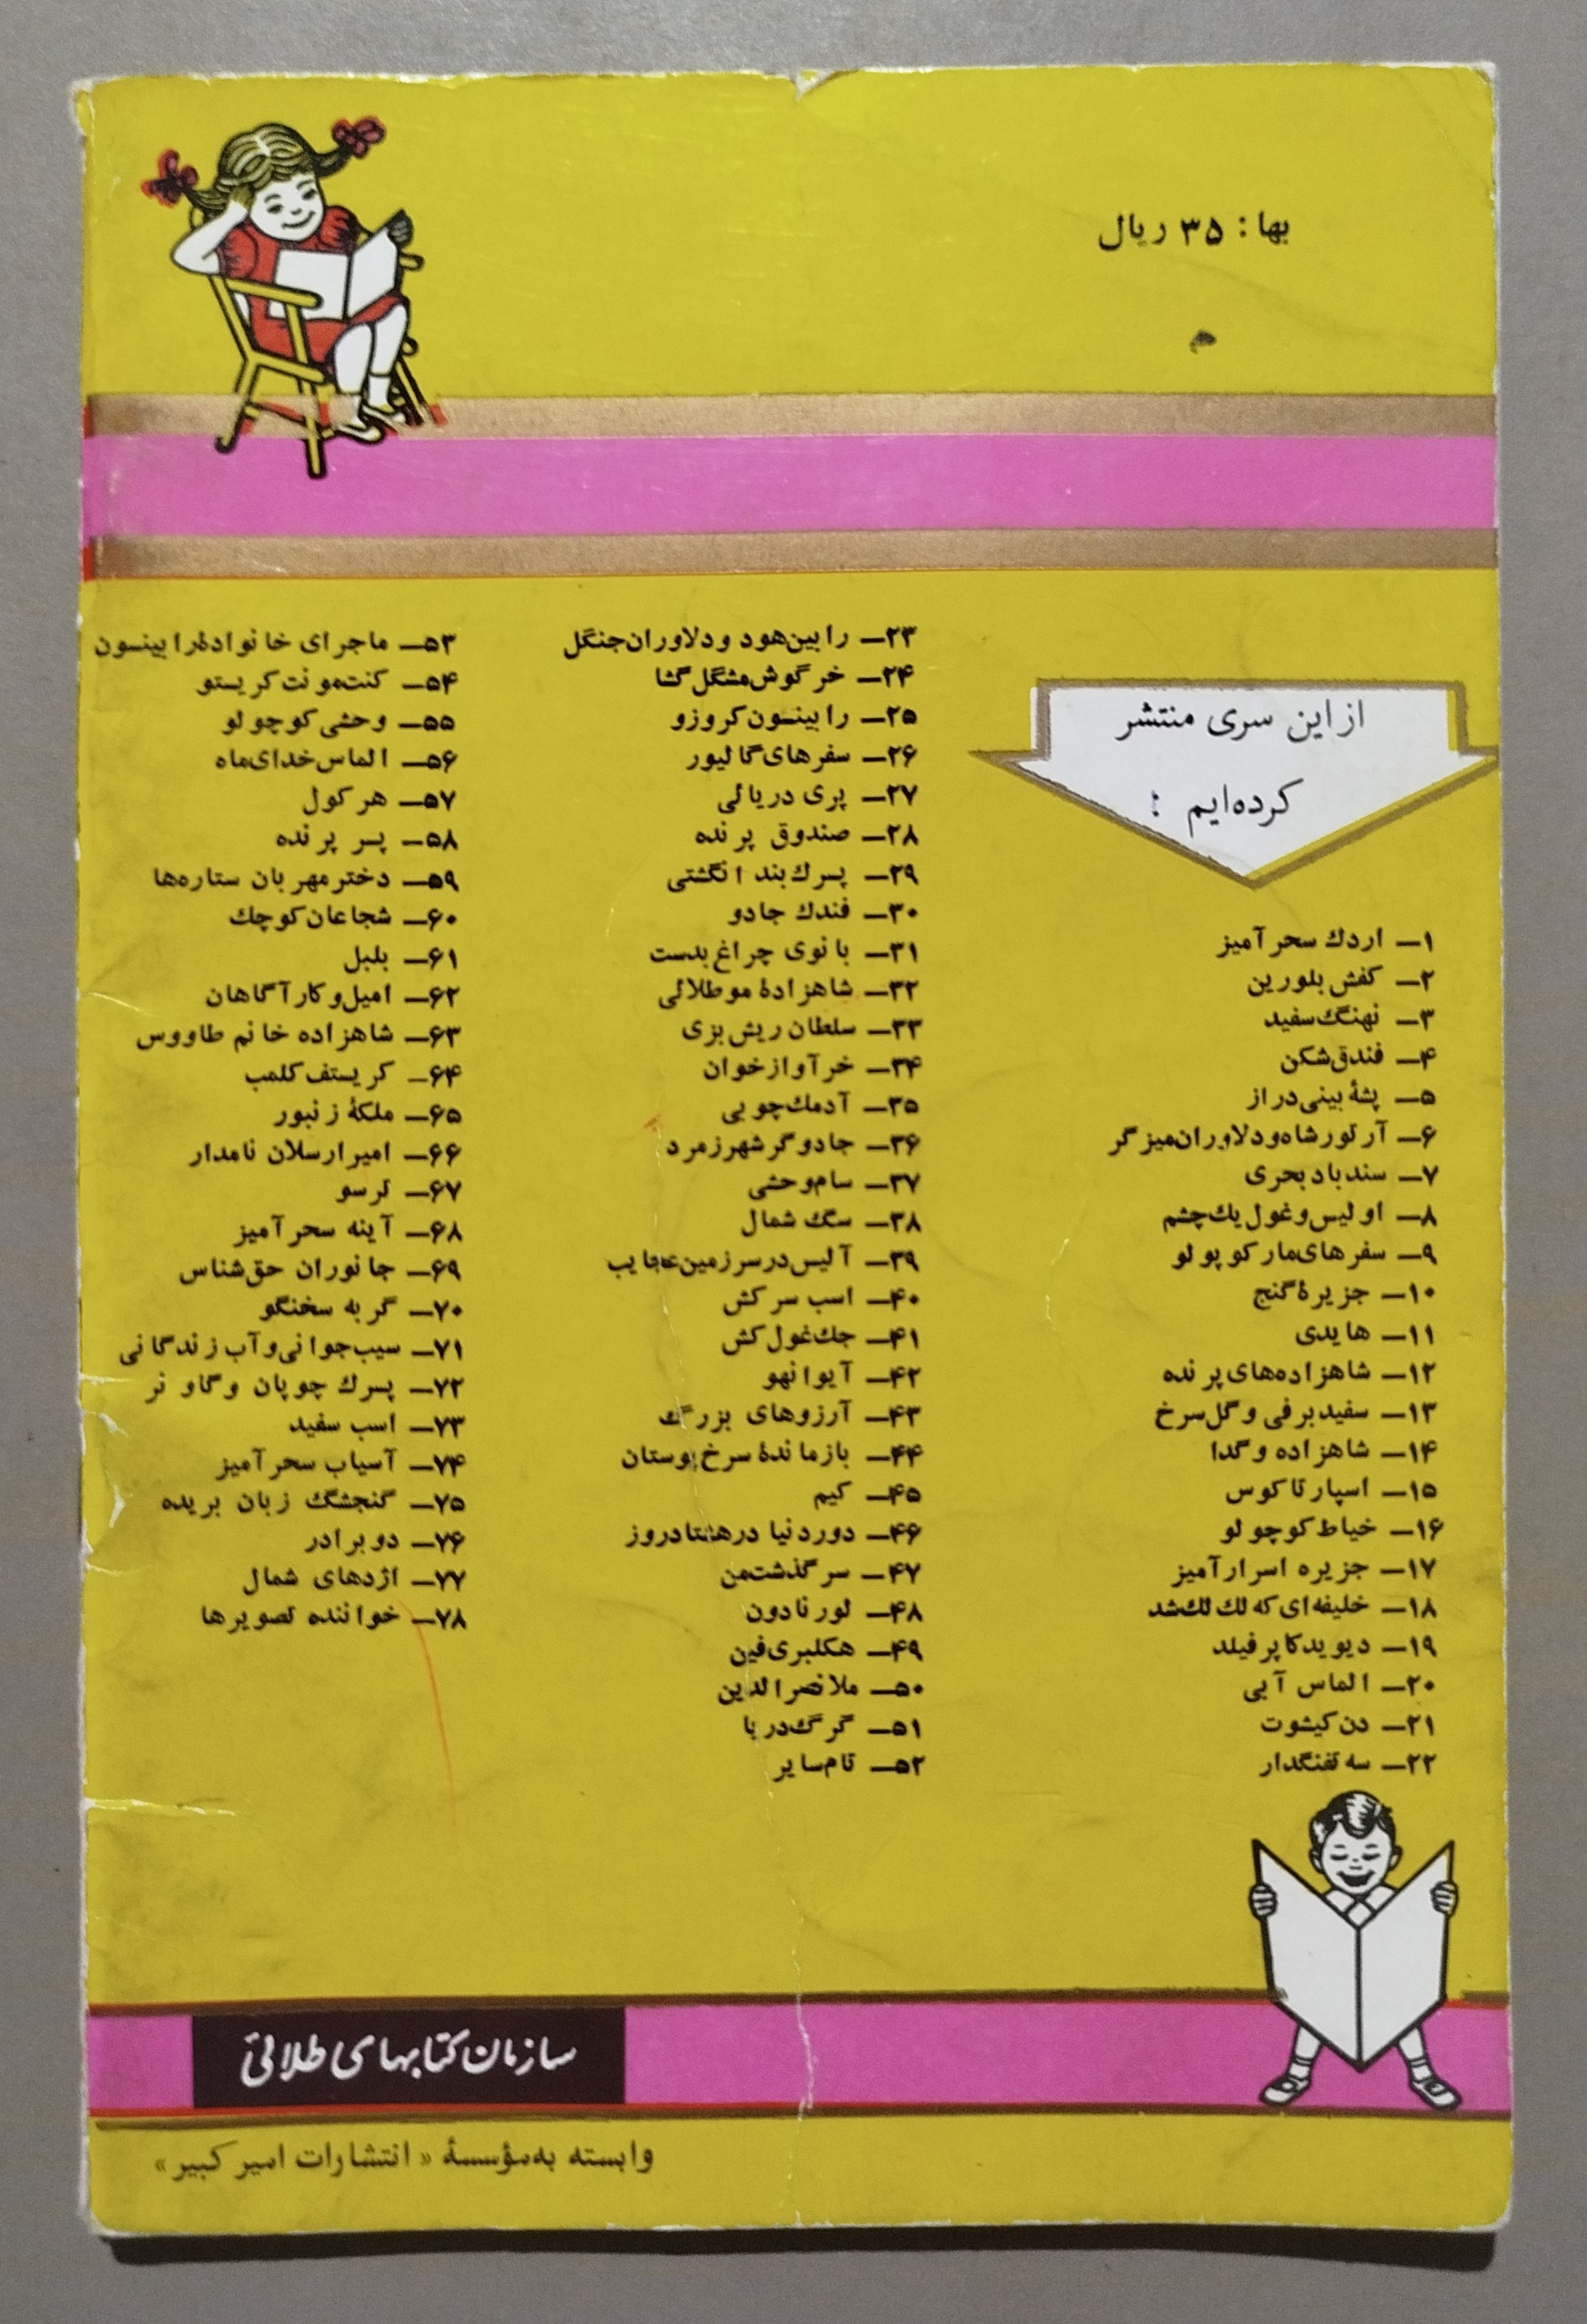 بها: ۳۵ ریال
از این سری منتشر
کرده‌ایم :
۱ــ اردك سحرآمیز
۲ــ کفش بلورین
۳ــ نهنگ سفید
۴ــ فندق شکن
۵ــ پشهٔ بینی دراز
۶ــ آرتور شاه و دلاوران میز گر
۷ــ سندباد بحری
۸ــ اولیس و غول یك چشم
۹ــ سفرهای مارکوپولو
۱۰ــ جزیرهٔ گنج
۱۱ــ هایدی
۱۲ــ شاهزاده‌های پرنده
۱۳ــ سفید برفی و گل سرخ
۱۴ــ شاهزاده و گدا
۱۵ــ اسپارتاکوس
۱۶ــ خیاط کوچولو
۱۷ــ جزیره اسرارآمیز
۱۸ــ خلیفه‌ای که لك لك شد
۱۹ــ دیوید کاپرفیلد
۲۰ــ الماس آبی
۲۱ــ دن کیشوت
۲۲ــ سه تفنگدار
۲۳ــ رابین هود و دلاوران جنگل
۲۴ــ خرگوش مشگل گشا
۲۵ــ رابینسون کروزو
۲۶ــ سفرهای گالیور
۲۷ــ پری دریائی
۲۸ــ صندوق پرنده
۲۹ــ پسرك بند انگشتی
۳۰ــ فندك جادو
۳۱ــ بانوی چراغ بدست
۳۲ــ شاهزادهٔ مو طلائی
۳۳ــ سلطان ریش بزی
۳۴ــ خر آواز خوان
۳۵ــ آدمك چوبی
۳۶ــ جادوگر شهر زمرد
۳۷ــ سام وحشی
۳۸ــ سگ شمال
۳۹ــ آلیس در سرزمین عجایب
۴۰ــ اسب سرکش
۴۱ــ جك غول کش
۴۲ــ آیوانهو
۴۳ــ آرزوهای بزرگ
۴۴ــ بازماندهٔ سرخ پوستان
۴۵ــ کیم
۴۶ــ دور دنیا در هشتاد روز
۴۷ــ سرگذشت من
۴۸ــ لورنادون
۴۹ــ هکلبری فین
۵۰ــ ملا نصرالدین
۵۱ــ گرگ دریا
۵۲ــ تام سایر
۵۳ــ ماجرای خانوادهٔ رابینسون
۵۴ــ کنت مونت کریستو
۵۵ــ وحشی کوچولو
۵۶ــ الماس خدای ماه
۵۷ــ هرکول
۵۸ــ پسر پرنده
۵۹ــ دختر مهربان ستاره‌ها
۶۰ــ شجاعان کوچك
۶۱ــ بلبل
۶۲ــ امیل و کارآگاهان
۶۳ــ شاهزاده خانم طاووس
۶۴ــ کریستف کلمب
۶۵ــ ملکهٔ زنبور
۶۶ــ امیر ارسلان نامدار
۶۷ــ ترسو
۶۸ــ آینه سحرآمیز
۶۹ــ جانوران حق شناس
۷۰ــ گربه سخنگو
۷۱ــ سیب جوانی و آب زندگانی
۷۲ــ پسرك چوپان و گاو نر
۷۳ــ اسب سفید
۷۴ــ آسیاب سحرآمیز
۷۵ــ گنجشگ زبان بریده
۷۶ــ دو برادر
۷۷ــ اژدهای شمال
۷۸ــ خواننده تصویرها
سازمان کتابهای طلائی
وابسته به مؤسسهٔ «انتشارات امیر کبیر»